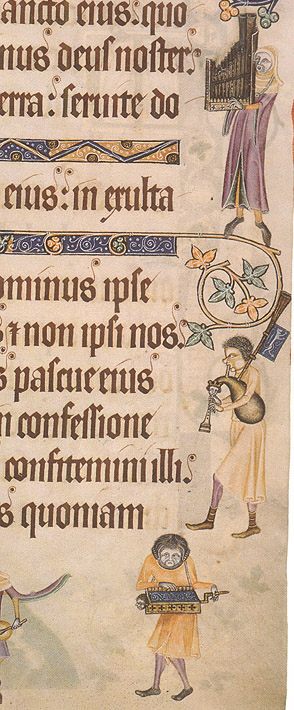 ancto eius: quo
nus deus noster.
erra: seruite do
eius: in exulta
ominus ipse
⁊ non ipsi nos.
s pascue eius
n confessione
confitemini illi.
s quoniam